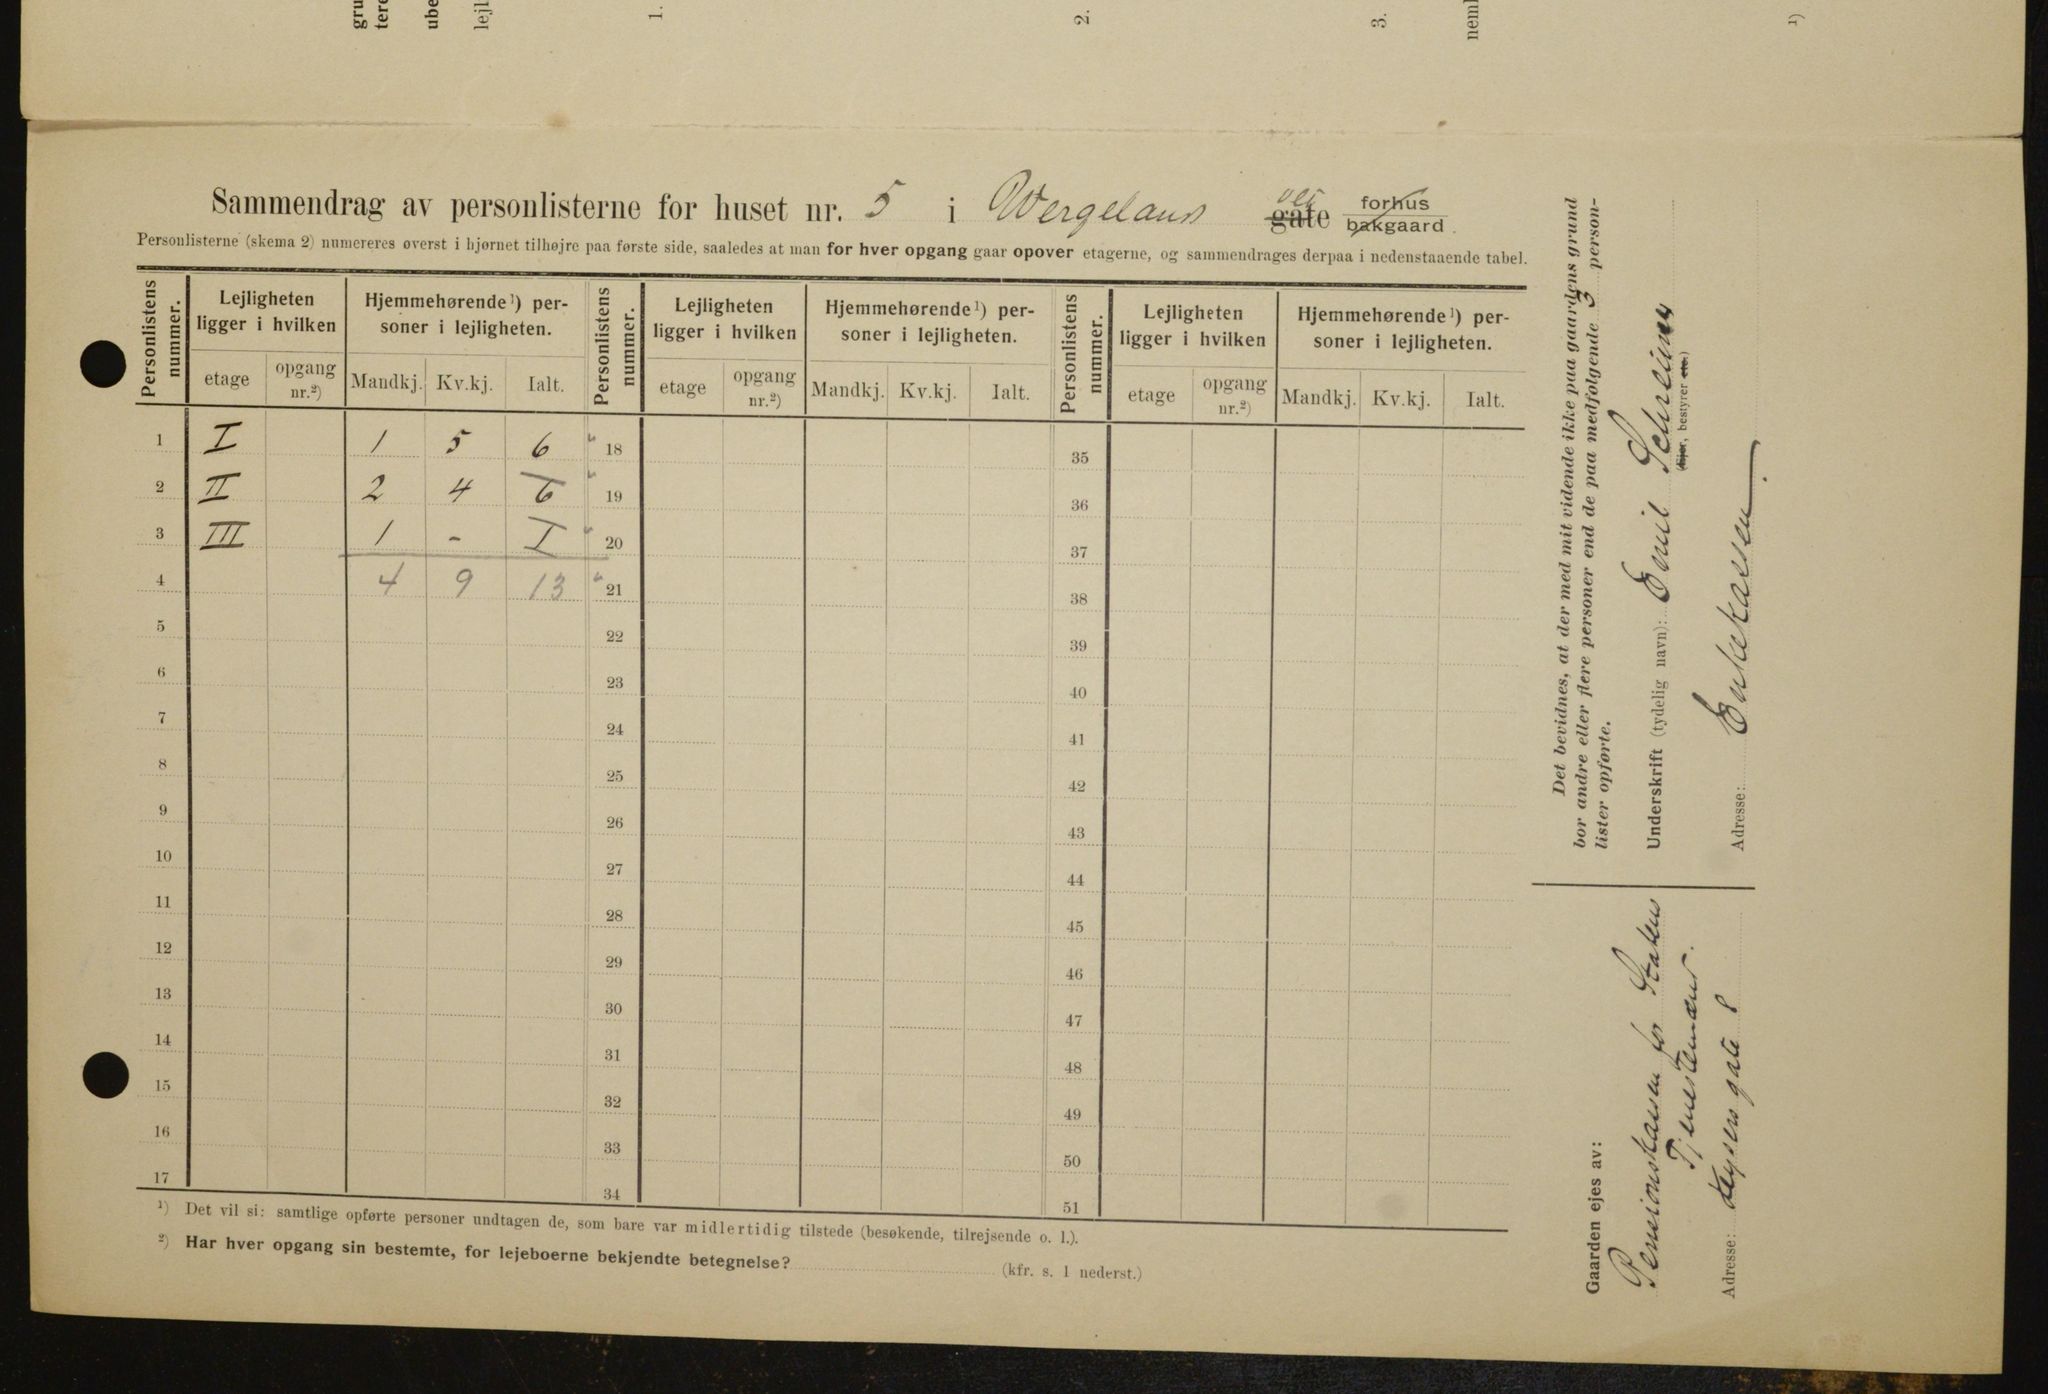 gru
tere
ube
lejl
1.
2.
3.
neml
1)
Sammendrag av personlisterne for huset nr. 5 i Wergelands vei gate forhus
bakgaard.
Personlisterne (skema 2) numereres øverst i hjørnet tilhøjre paa første side, saaledes at man for hver opgang gaar opover etagerne, og sammendrages derpaa i nedenstaaende tabel.
Personlistens nummer. Lejligheten ligger i hvilken Hjemmehørende¹) personer i lejligheten. Personlistens nummer. Lejligheten ligger i hvilken Hjemmehørende¹) personer i lejligheten. Personlistens nummer. Lejligheten ligger i hvilken Hjemmehørende¹) personer i lejligheten.
etage opgang nr.²) Mandkj. Kv.kj. Ialt. etage opgang nr.²) Mandkj. Kv.kj. Ialt. etage opgang nr.²) Mandkj. Kv.kj. Ialt.
1 I 1 5 6 18 35
2 II 2 4 6 19 36
3 III 1 - I 20 37
4 4 9 13 21 38
5 22 39
6 23 40
7 24 41
8 25 42
9 26 43
10 27 44
11 28 45
12 29 46
13 30 47
14 31 48
15 32 49
16 33 50
17 34 51
¹) Det vil si: samtlige opførte personer undtagen de, som bare var midlertidig tilstede (besøkende, tilrejsende o. l.).
²) Har hver opgang sin bestemte, for lejeboerne bekjendte betegnelse? (kfr. s. 1 nederst.)
Det bevidnes, at der med mit vidende ikke paa gaardens grund
bor andre eller flere personer end de paa medfølgende 3 person-
lister opførte.
Underskrift (tydelig navn): Emil Schreiner
(Ejer, bestyrer etc.)
Adresse: Enkekassen
Gaarden ejes av:
Pensionskassen for Statens
Tjenestemænd.
Adresse: Keysers gate 8